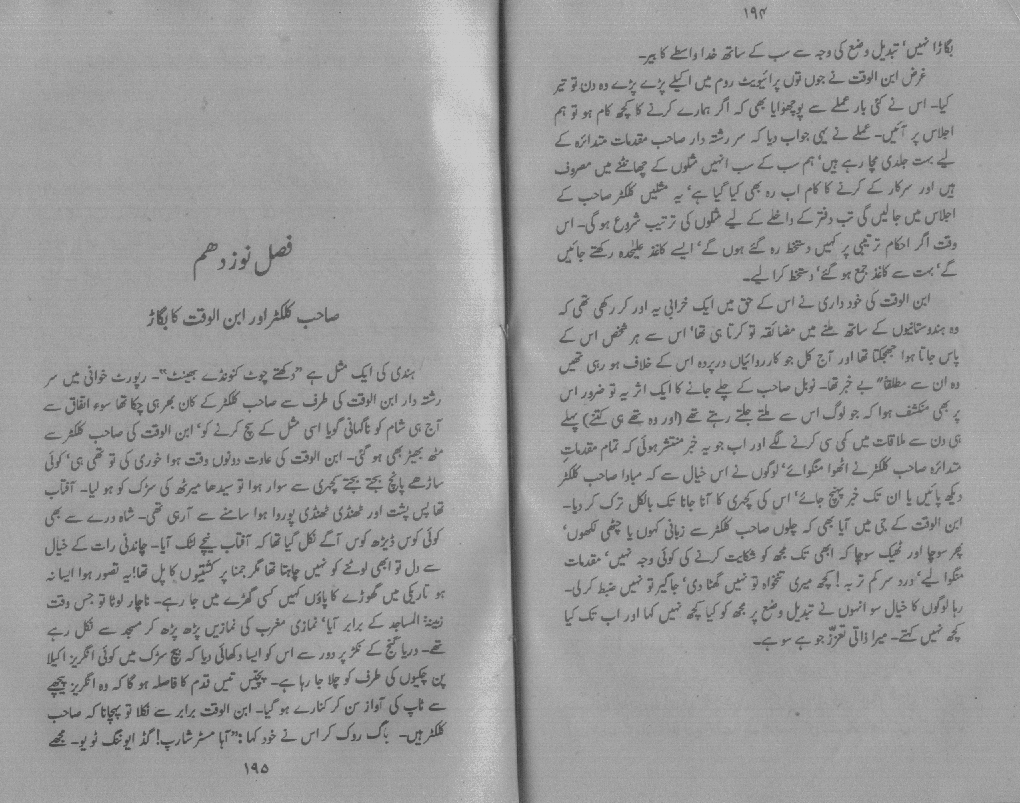 ۱۹۴
بگاڑا نہیں‘ تبدیل وضع کی وجہ سے سب کے ساتھ خدا واسطے کا بیر۔
غرض ابن الوقت نے جوں توں پرائیویٹ روم میں اکیلے پڑے پڑے وہ دن تو تیر
کیا۔ اس نے کئی بار عملے سے پوچھوایا بھی کہ اگر ہمارے کرنے کا کچھ کام ہو تو ہم
اجلاس پر آئیں۔ عملے نے یہی جواب دیا کہ سر رشتہ دار صاحب مقدمات متدائرہ کے
لیے بہت جلدی مچا رہے ہیں‘ ہم سب کے سب انہیں مثلوں کے چھانٹنے میں مصروف
ہیں اور سرکار کے کرنے کا کام اب رہ بھی کیا گیا ہے‘ یہ مثلیں کلکٹر صاحب کے
اجلاس میں جالیں گی تب دفتر کے داخلے کے لیے مثلوں کی ترتیب شروع ہو گی۔ اس
وقت اگر احکام ترتیبی پر کہیں دستخط رہ گئے ہوں گے‘ ایسے کاغذ علیٰحدہ رکھتے جائیں
گے‘ بہت سے کاغذ جمع ہو گئے‘ دستخط کرا لیے۔
ابن الوقت کی خود داری نے اس کے حق میں ایک خرابی یہ اور کر رکھی تھی کہ
وہ ہندوستانیوں کے ساتھ ملنے میں مضائقہ تو کرتا ہی تھا‘ اس سے ہر شخص اس کے
پاس جاتا ہوا جھجکتا تھا اور آج کل جو کارروائیاں درپردہ اس کے خلاف ہو رہی تھیں
وہ ان سے مطلقاً” بے خبر تھا۔ نوبل صاحب کے چلے جانے کا ایک اثر یہ تو ضرور اس
پر بھی منکشف ہوا کہ جو لوگ اس سے ملتے جلتے رہتے تھے (اور وہ تھے ہی کتنے) پہلے
ہی دن سے ملاقات میں کمی سی کرنے لگے اور اب جو یہ خبر منتشر ہوئی کہ تمام مقدماتِ
متدائرہ صاحب کلکٹر نے اٹھوا منگوائے‘ لوگوں نے اس خیال سے کہ مبادا صاحب کلکٹر
دیکھ پائیں یا ان تک خبر پہنچ جائے‘ اس کی کچہری کا آنا جانا تک بالکل ترک کر دیا۔
ابن الوقت کے جی میں آیا بھی کہ چلوں صاحب کلکٹر سے زبانی کہوں یا چٹھی لکھوں‘
پھر سوچا اور ٹھیک سوچا کہ ابھی تک مجھ کو شکایت کرنے کی کوئی وجہ نہیں‘ مقدمات
منگوا لیے‘ درد سر کم تر بہ! کچھ میری تنخواہ تو نہیں گھٹا دی‘ جاگیر تو نہیں ضبط کر لی۔
رہا لوگوں کا خیال سو انہوں نے تبدیل وضع پر مجھ کو کیا کچھ نہیں کہا اور اب تک کیا
کچھ نہیں کہتے۔ میرا ذاتی تعزز جو ہے سو ہے۔
فصل نوزدھم
صاحب کلکٹر اور ابن الوقت کا بگاڑ
ہندی کی ایک مثل ہے ”دکھتے چوٹ کنونڈے بھینٹ“۔ رپورٹ خوانی میں سر
رشتہ دار ابن الوقت کی طرف سے صاحب کلکٹر کے کان بھر ہی چکا تھا سوء اتفاق سے
آج ہی شام کو ناگہانی گویا اسی مثل کے سچ کرنے کو‘ ابن الوقت کی صاحب کلکٹر سے
مٹھ بھیڑ بھی ہو گئی۔ ابن الوقت کی عادت دونوں وقت ہوا خوری کی تو تھی ہی‘ کوئی
ساڑھے پانچ بجتے بجتے کچہری سے سوار ہوا تو سیدھا میرٹھ کی سڑک کو ہو لیا۔ آفتاب
تھا پس پشت اور ٹھنڈی ٹھنڈی پوروا ہوا سامنے سے آرہی تھی۔ شاہ درے سے بھی
کوئی کوس ڈیڑھ کوس آگے نکل گیا تھا کہ آفتاب نیچے لٹک آیا۔ چاندنی رات کے خیال
سے دل تو ابھی لوٹنے کو نہیں چاہتا تھا مگر جمنا پر کشتیوں کا پل تھا! یہ تصور ہوا ایسا نہ
ہو تاریکی میں گھوڑے کا پاؤں کہیں کسی گھڑے میں جا رہے۔ ناچار لوٹا تو جس وقت
زینۃ المساجد کے برابر آیا‘ نمازی مغرب کی نمازیں پڑھ پڑھ کر مسجد سے نکل رہے
تھے۔ دریا گنج کے نکڑ پر دور سے اس کو ایسا دکھائی دیا کہ بیچ سڑک میں کوئی انگریز اکیلا
پن چکیوں کی طرف کو چلا جا رہا ہے۔ پچیس تیس قدم کا فاصلہ ہو گا کہ وہ انگریز پیچھے
سے ٹاپ کی آواز سن کر کنارے ہو گیا۔ ابن الوقت برابر سے نکلا تو پہچانا کہ صاحب
کلکٹر ہیں۔ باگ روک کر اس نے خود کہا: ”آہا مسٹر شارپ! گڈ ایوننگ ٹو یو۔ مجھے
۱۹۵